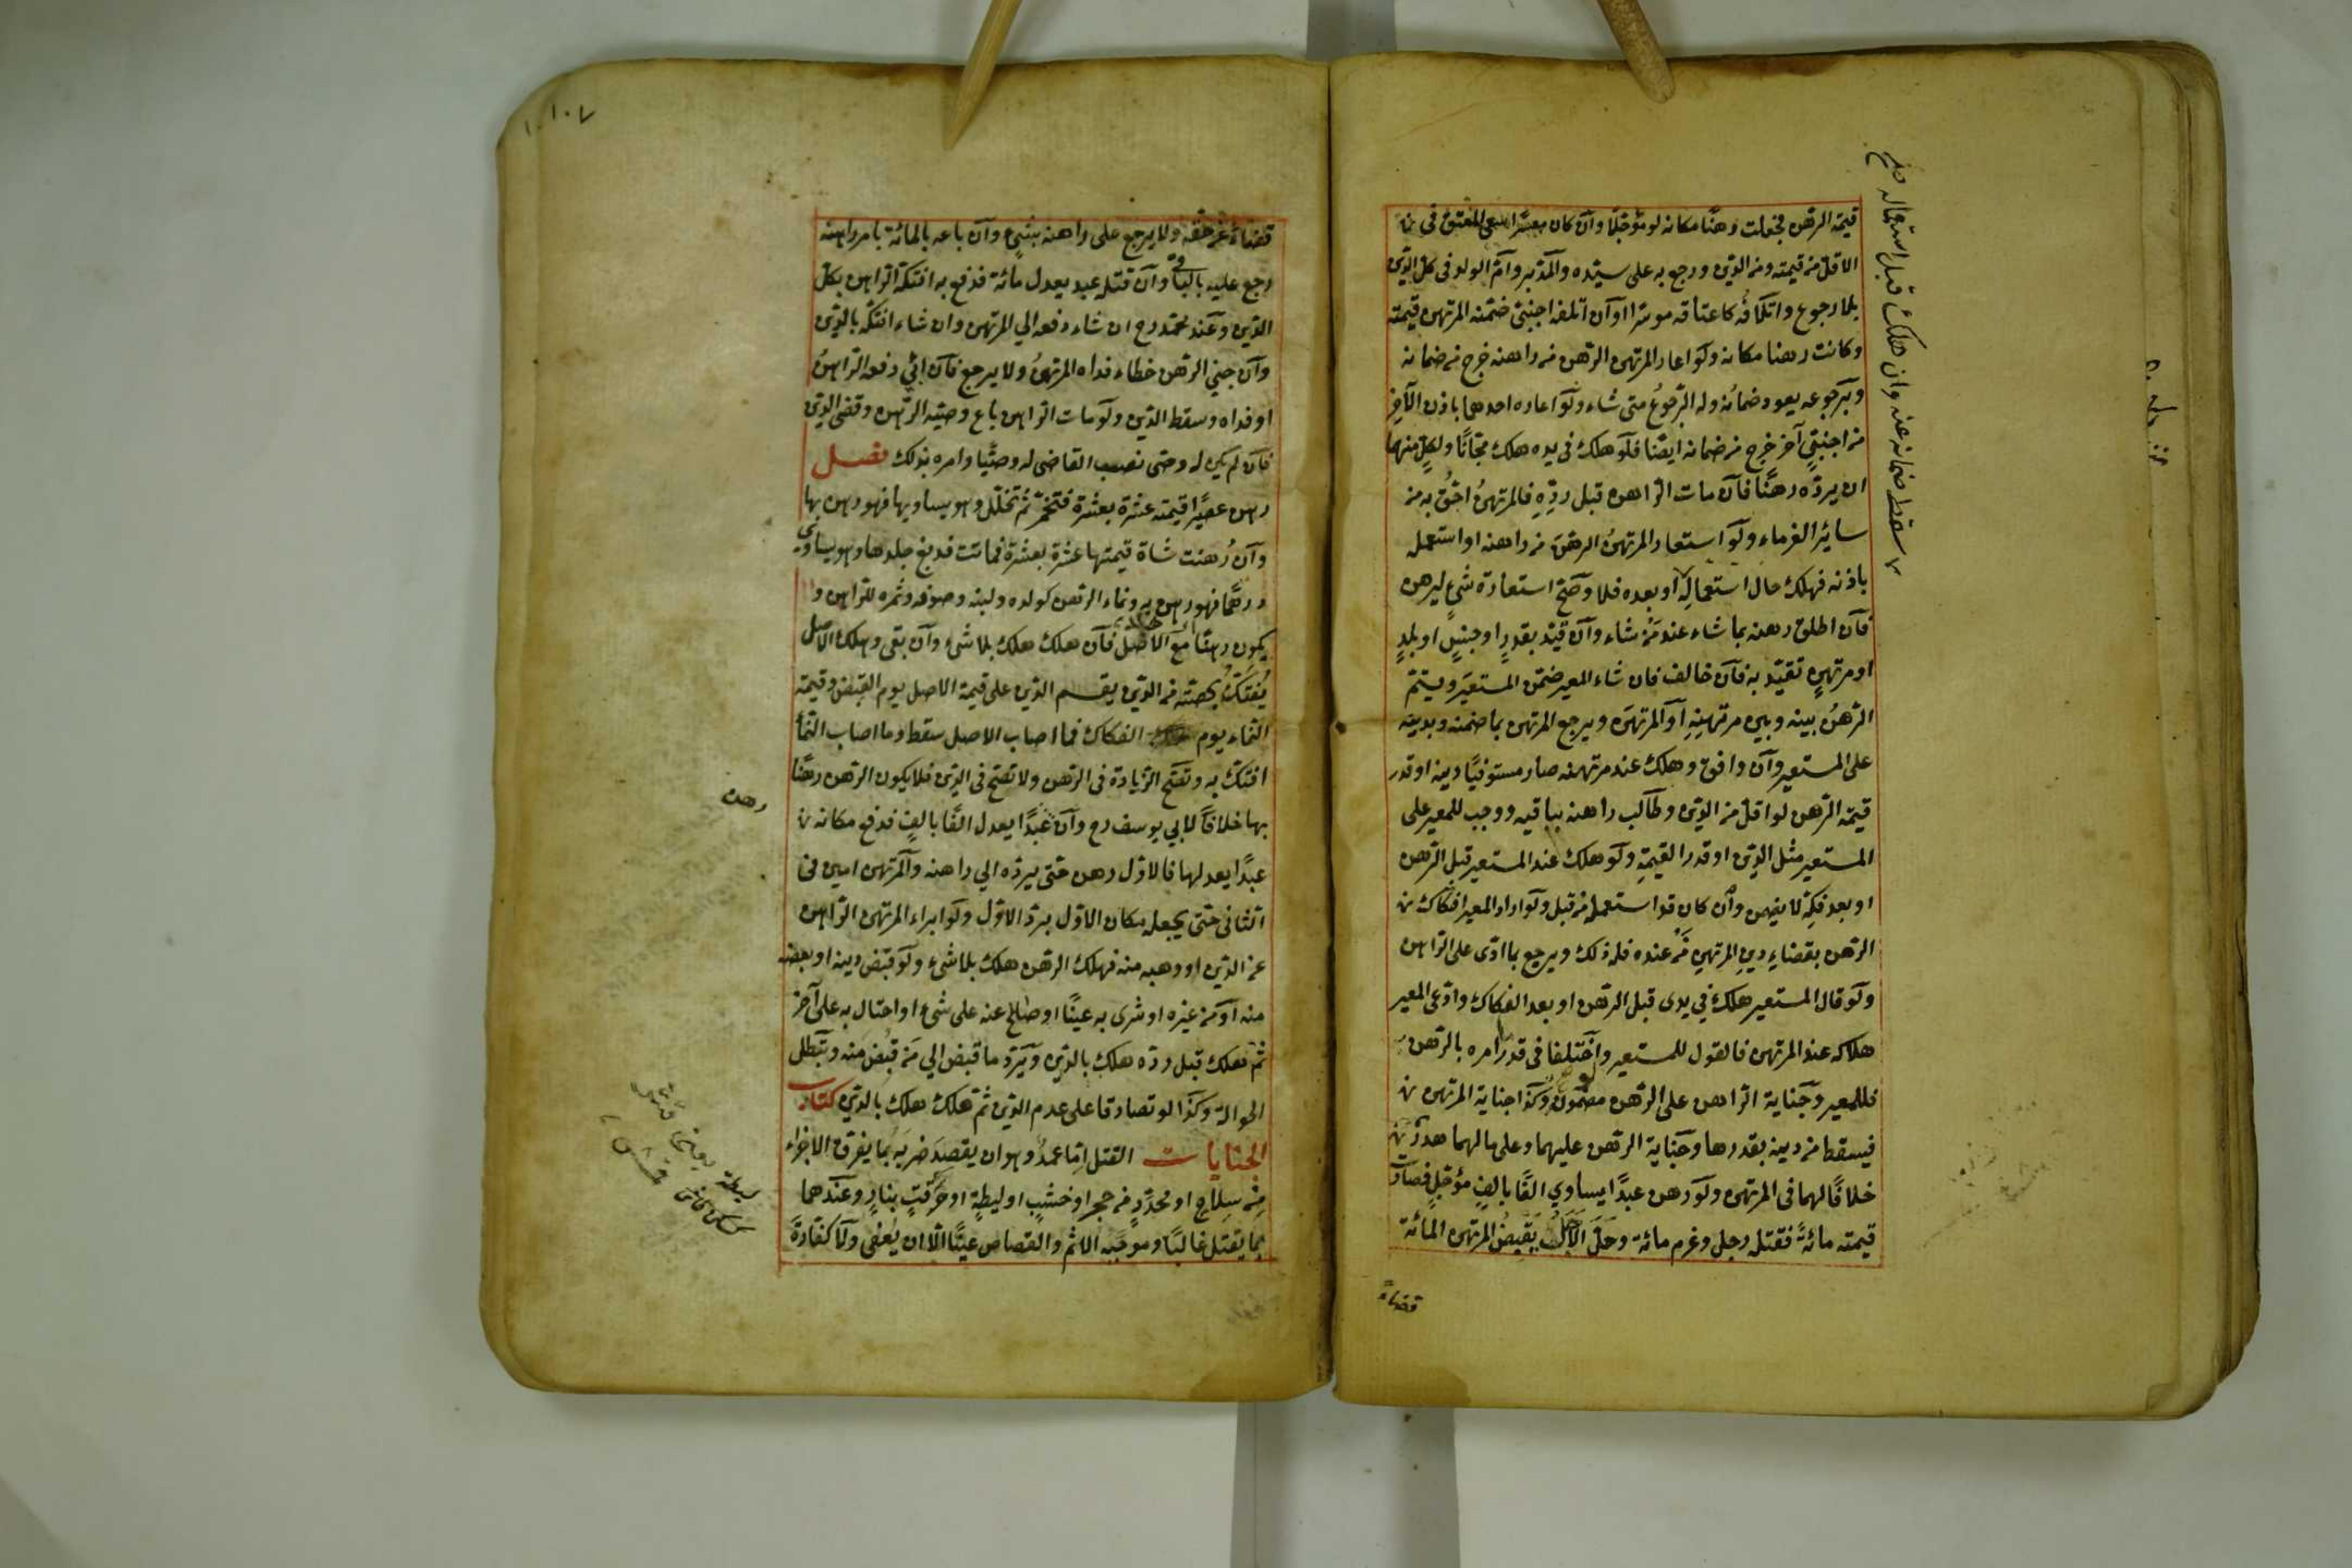 قيمة الرهن فجعلت رهنًا مكانه لو مؤجلًا وآن كان معسرًا سعى المعتق فى
الاقل من قيمته ومن الدين ورجع به على سيّده والمدبر وام الولد فى كل الدين
بلا رجوع واتلافه كاعتاقه موسرا وآن اتلفه اجنبيّ ضمّنه المرتهن قيمته
وكانت رهنا مكانه ولو اعار المرتهن الرهن من راهنه خرج من ضمانه
وبرجوعه يعود ضمانه وله الرجوع متى شاء ولو اعاره احدهما باذن الآخر
من اجنبيّ آخر خرج من ضمانه ايضًا فلو هلك فى يده هلك مجّانًا ولكلٍ منهما
ان يردّه رهنًا فآن مات الراهن قبل ردّه فالمرتهن احقّ به من
سائر الغرماء ولو استعار المرتهن الرهن من راهنه او استعمله
باذنه فهلك حال استعماله او بعده فلا وصحّ استعارة شئ ليرهن
فآن اطلق رهنه بما شاء عند مَن شاء وآن قيّد بقدرٍ او جنسٍ او بلدٍ
او مرتهنٍ تقيّد به فآن خالف فان شاء المعير ضمّن المستعير ويتمّ
الرهن بينه وبين مرتهنه او المرتهن ويرجع المرتهن بما ضمنه وبدينه
على المستعير وآن وافق وهلك عند مرتهنه صار مستوفيًا دينه او قدر
قيمة الرهن لو اقل من الدين وطالب راهنه بباقيه ووجب للمعير على
المستعير مثل الدين او قدر القيمة ولو هلك عند المستعير قبل الرهن
او بعد فكّه لا يضمن وآن كان قد استعمله من قبل ولو اراد المعير افتكاك
الرهن بقضاء دين المرتهن من عنده فله ذلك ويرجع بما ادّى على الراهن
ولو قال المستعير هلك في يدى قبل الرهن او بعد الفكاك وادّعى المعير
هلاكه عند المرتهن فالقول للمستعير وآن اختلفا فى قدر ما امره بالرهن به
فللمعير وجناية الراهن على الرهن مضمونة وكذا جناية المرتهن
فيسقط من دينه بقدرها وجناية الرهن عليهما وعلى مالهما هدرٌ
خلافًا لهما فى المرتهن ولو رهن عبدًا يساوي الفًا بالفٍ مؤجلٍ فصارت
قيمته مائةً فقتله رجل وغرم مائة وحلّ الاجل يقبض المرتهن المائة
قضاءً
سقط ضمانه عنه وان هلك قبل استعماله صح
١٠٧
قضاءً عن حقه ولا يرجع على راهنه بشئ وآن باعه بالمائة بامر راهنه
رجع عليه بالباقى وآن قتله عبد يعدل مائة فدفع به افتكّه الراهن بكل
الدين وعند محمد رح ان شاء دفعه الي المرتهن وان شاء افتكّه بالدين
وآن جني الرهن خطاء فداه المرتهن ولا يرجع فآن ابي دفعه الراهن
او فداه وسقط الدين ولو مات الراهن باع وصيّه الرهن وقضى الدين
فآن لم يكن له وصى نصب القاضى له وصيًّا وامره بذلك فصل
رهن عصيرًا قيمته عشرة بعشرة فتخمّر ثم تخلّل وهو يساويها فهو رهن بها
وآن رُهنت شاة قيمتها عشرة بعشرة فماتت فدبغ جلدها وهو يساوى
درهمًا فهو رهن به ونماء الرهن كولده ولبنه وصوفه وثمره للراهن و
يكون رهنًا مع الاصل فآن هلك هلك بلا شئ وآن بقى وهلك الاصل
يُفتكّ بحصّته من الدين يقسم الدين على قيمة الاصل يوم القبض وقيمة
النماء يوم الفكاك فما اصاب الاصل سقط وما اصاب النماء
افتكّ به وتصحّ الزيادة فى الرهن ولا تصحّ فى الدين فلا يكون الرهن رهنًا
بها خلافًا لابي يوسف رح وآن رهن عبدًا يعدل الفًا بالفٍ فدفع مكانه
عبدًا يعدلها فالاوّل رهن حتى يردّه الي راهنه والمرتهن امين فى
الثانى حتى يجعله مكان الاوّل بردّ الاوّل ولو ابراء المرتهن الراهن
عن الدين او وهبه منه فهلك الرهن هلك بلا شئ ولو قبض دينه او بعضه
منه او من غيره او شرى به عينًا او صالح عنه على شئ او احتال به على آخر
ثم هلك قبل ردّه هلك بالدين ويردّ ما قبض الي مَن قبض منه وتبطل
الحوالة وكذا لو تصادقا على عدم الدين ثم هلك هلك بالدين كتاب
الجنايات القتل امّا عمدٌ وهو ان يقصد ضربه بما يفرق الاجزاء
من سلاح او محدّدٍ من حجر او خشبٍ او ليطةٍ او حرقتٍ بنارٍ وعندهما
بما يقتل غالبًا وموجبه الاثم والقصاص عينًا الّا ان يُعفى ولا كفارةً
رهن
ليطة